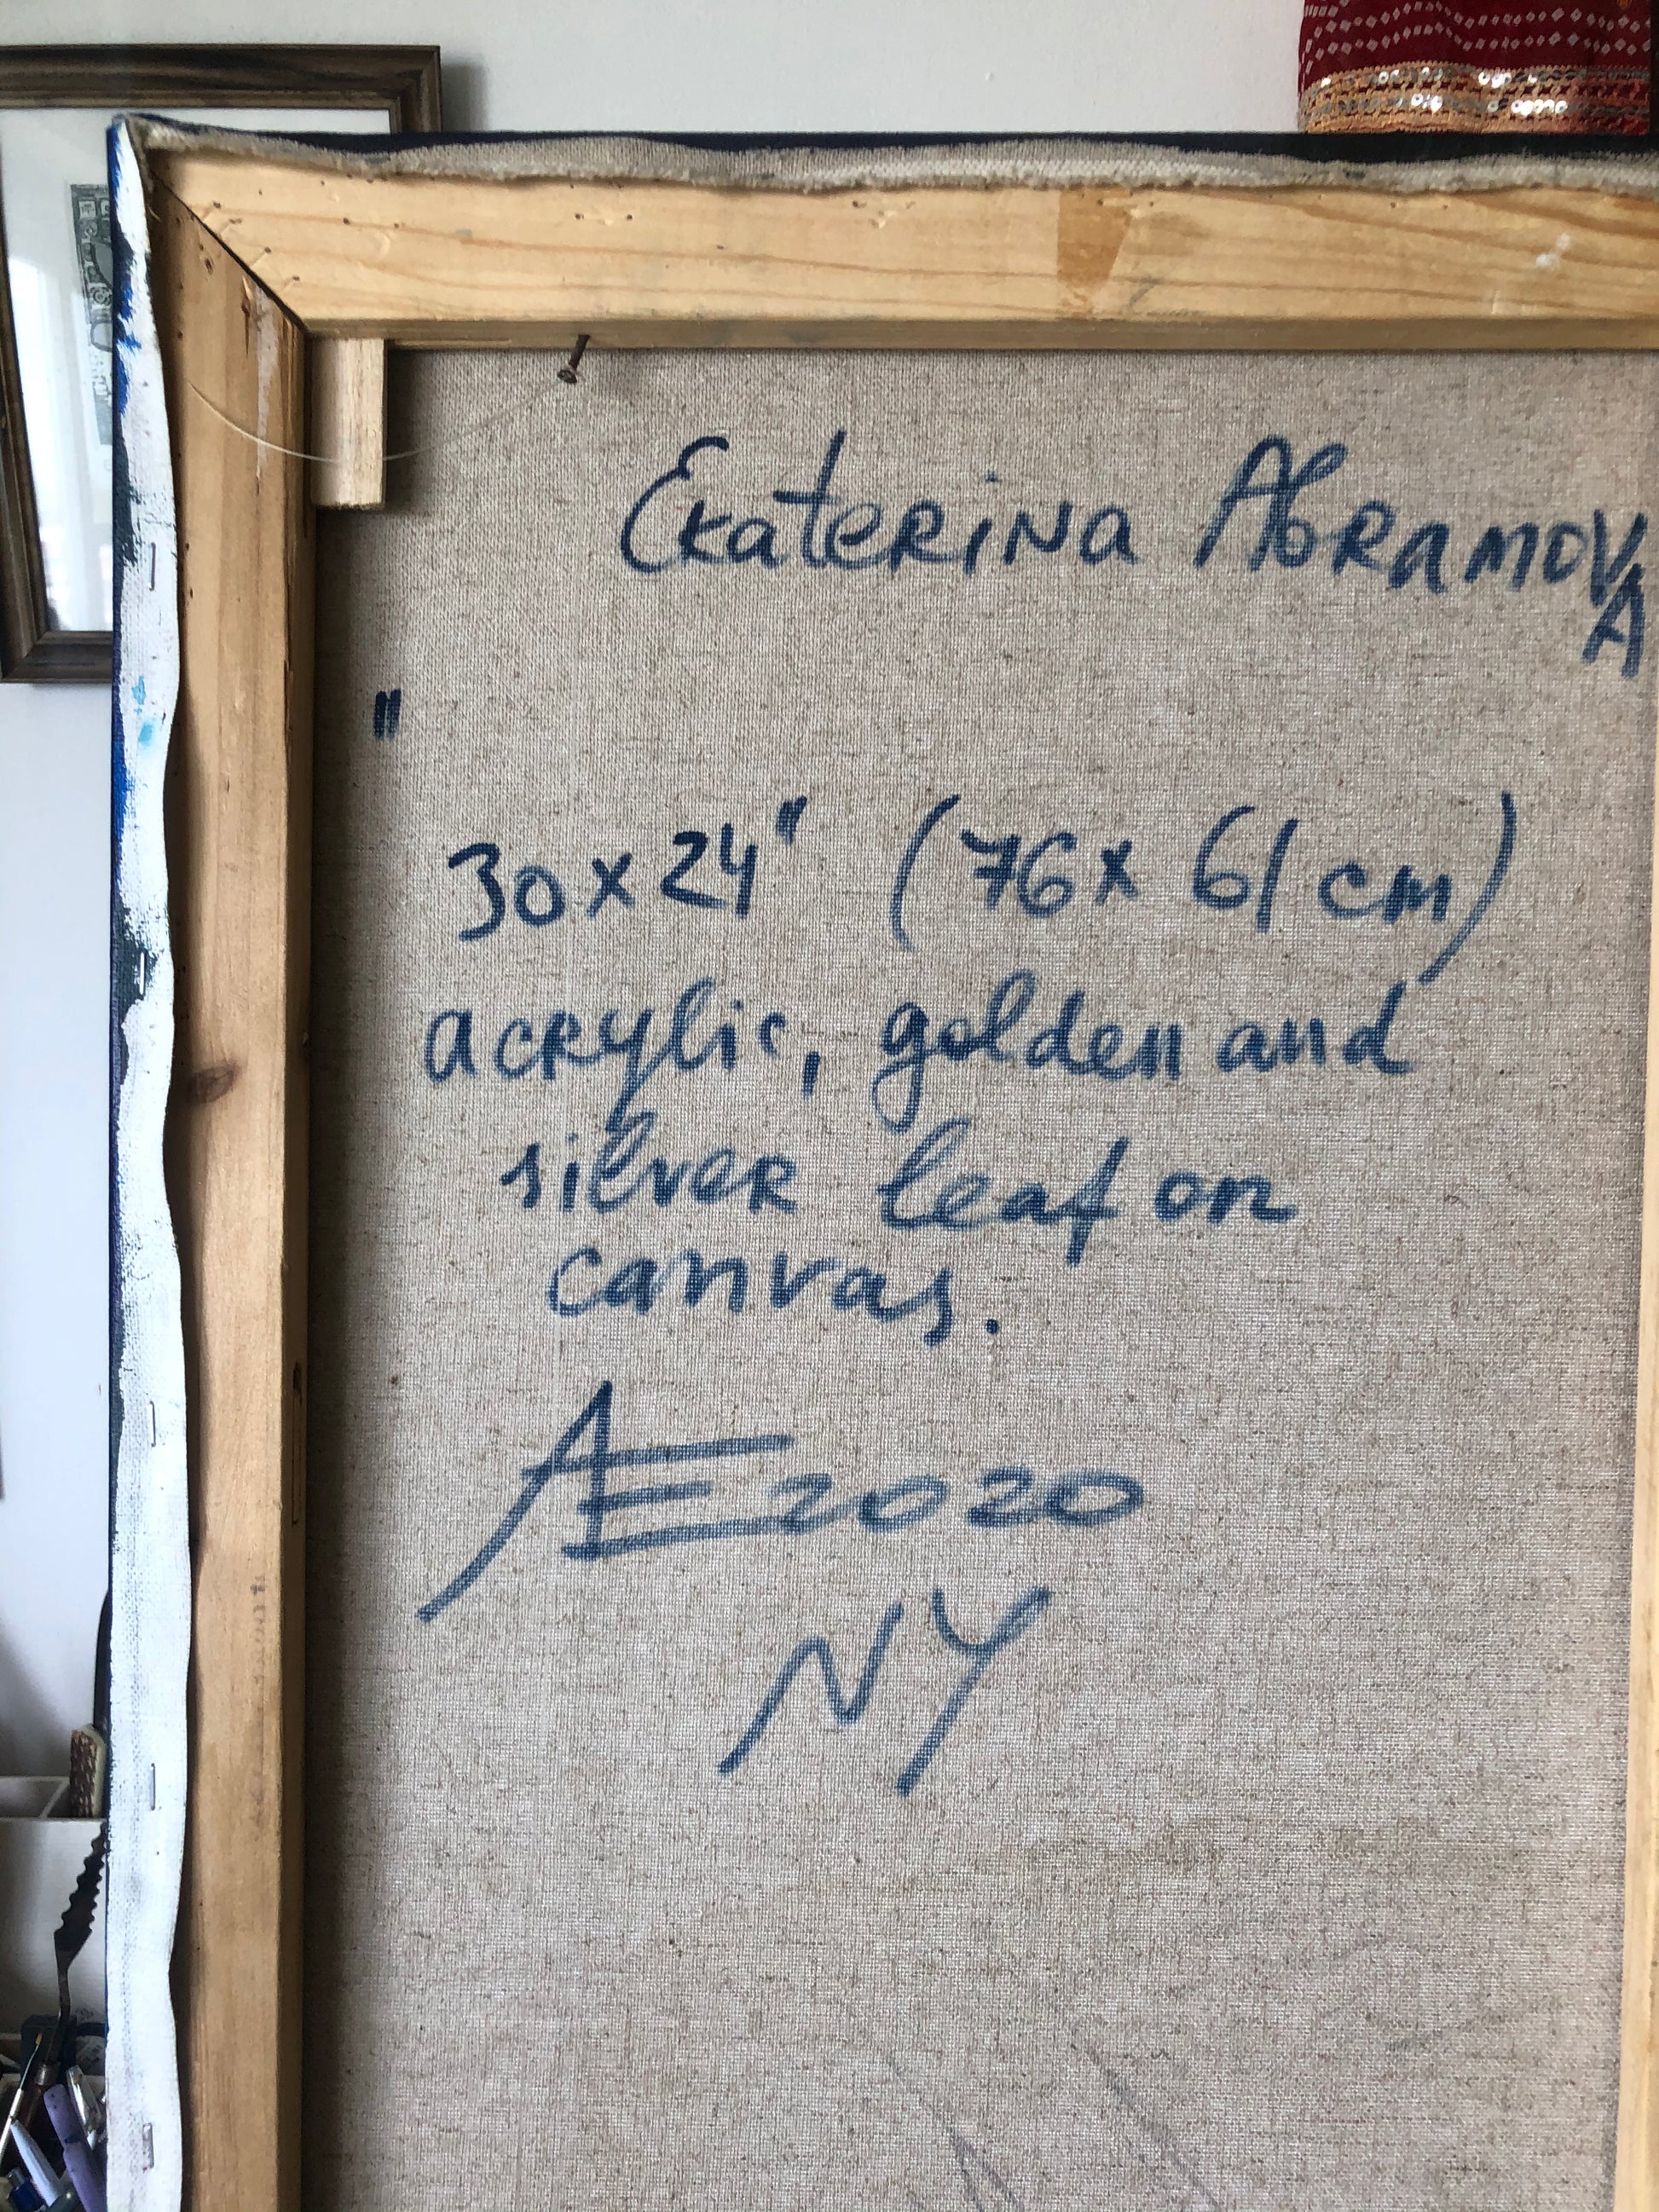 Ekaterina Abramova
"
30 x 24" (76 x 61 cm)
acrylic, golden and
silver leaf on
canvas.
AE 2020
NY